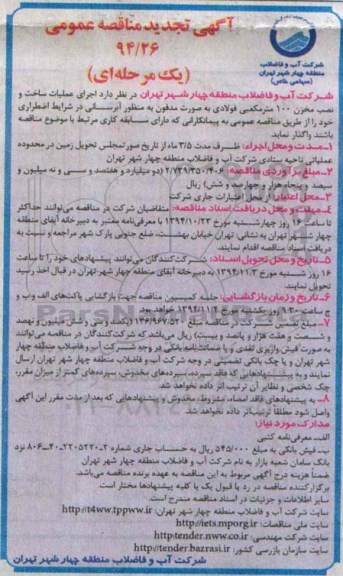 آگهی تجدید مناقصه عمومی
۹۴/۲۶
(یک مرحله‌ای)
شرکت آب و فاضلاب
منطقه چهار شهر تهران
(سهامی خاص)
شرکت آب و فاضلاب منطقه چهار شهر تهران در نظر دارد اجرای عملیات ساخت و
نصب مخزن ۱۰۰ مترمکعبی فولادی به صورت مدفون به منظور آبرسانی در شرایط اضطراری
خود را از طریق مناقصه عمومی به پیمانکارانی که دارای سابقه کاری مرتبط با موضوع مناقصه
باشند واگذار نماید.
۱-مدت و محل اجراء: ظرف مدت ۳/۵ ماه از تاریخ صورتمجلس تحویل زمین در محدوده
عملیاتی ناحیه ستادی شرکت آب و فاضلاب منطقه چهار شهر تهران
۲-مبلغ برآوردی مناقصه: ۲/۷۳۹/۳۵۰/۴۰۶ (دو میلیارد و هفتصد و سی و نه میلیون و
سیصد و پنجاه هزار و چهارصد و شش) ریال
۳-محل اعتبار: از محل اعتبارات جاری شرکت
۴-مهلت و محل دریافت اسناد مناقصه: متقاضیان شرکت در مناقصه می‌توانند حداکثر
تا ساعت ۱۶ روز چهارشنبه مورخ ۱۳۹۴/۱۰/۲۳ با معرفی‌نامه معتبر به دبیرخانه آبفای منطقه
چهار شهر تهران به نشانی: تهران خیابان بهشت، ضلع جنوبی پارک شهر مراجعه و نسبت به
دریافت اسناد مناقصه اقدام نمایند.
۵-تاریخ و محل تحویل اسناد: شرکت‌کنندگان می‌توانند پیشنهادهای خود را تا ساعت
۱۶ روز شنبه مورخ ۱۳۹۴/۱۱/۳ به دبیرخانه آبفای منطقه چهار شهر تهران در قبال اخذ رسید
تحویل نمایند.
۶-تاریخ و زمان بازگشایی: جلسه کمیسیون مناقصه جهت بازگشایی پاکت‌های الف و ب و
ج ساعت ۹:۳۰ روز یکشنبه مورخ ۱۳۹۴/۱۱/۴ خواهد بود.
۷-مبلغ تضمین شرکت در مناقصه مبلغ ۱۳۶/۹۶۷/۵۲۰ (یکصد و سی و شش میلیون و نهصد
و شصت و هفت هزار و پانصد و بیست) ریال می‌باشد که شرکت‌کنندگان در مناقصه می‌توانند
به صورت فیش واریزی نقدی و یا ضمانتنامه بانکی در وجه شرکت آب و فاضلاب منطقه چهار
شهر تهران و یا چک بانکی تضمینی در وجه شرکت آب و فاضلاب منطقه چهار شهر تهران ارسال
نمایند و به پیشنهادهایی که فاقد سپرده، سپرده‌های مخدوش، سپرده‌های کمتر از میزان مقرر،
چک شخصی و نظایر آن ترتیب اثر داده نخواهد شد.
۸- به پیشنهادهای فاقد امضاء، مشروط، مخدوش و پیشنهادهایی که بعد از مدت مقرر این آگهی
واصل شود مطلقا ترتیب‌اثر داده نخواهد شد.
مدارک مورد نیاز:
الف-معرفی‌نامه کتبی
ب- فیش بانکی به مبلغ ۵۴۵/۰۰۰ ریال به حساب جاری شماره
بانک سامان شعبه بازار به نام شرکت آب و فاضلاب منطقه چهار شهر تهران
ضمناً هزینه درج آگهی مربوط به این مناقصه به عهده برنده مناقصه می‌باشد.
برگزارکننده مناقصه در رد یا قبول یک یا کلیه پیشنهادها مختار است.
سایر اطلاعات و جزئیات در اسناد مناقصه مندرج است.
سایت شرکت آب و فاضلاب منطقه چهار شهر تهران: http://t4ww.tppww.ir
سایت ملی مناقصات: http://iets.mporg.ir
سایت شرکت مهندسی: http://tender.nww.co.ir
سایت سازمان بازرسی کشور: http://tender.bazrasi.ir
شرکت آب و فاضلاب منطقه چهار شهر تهران